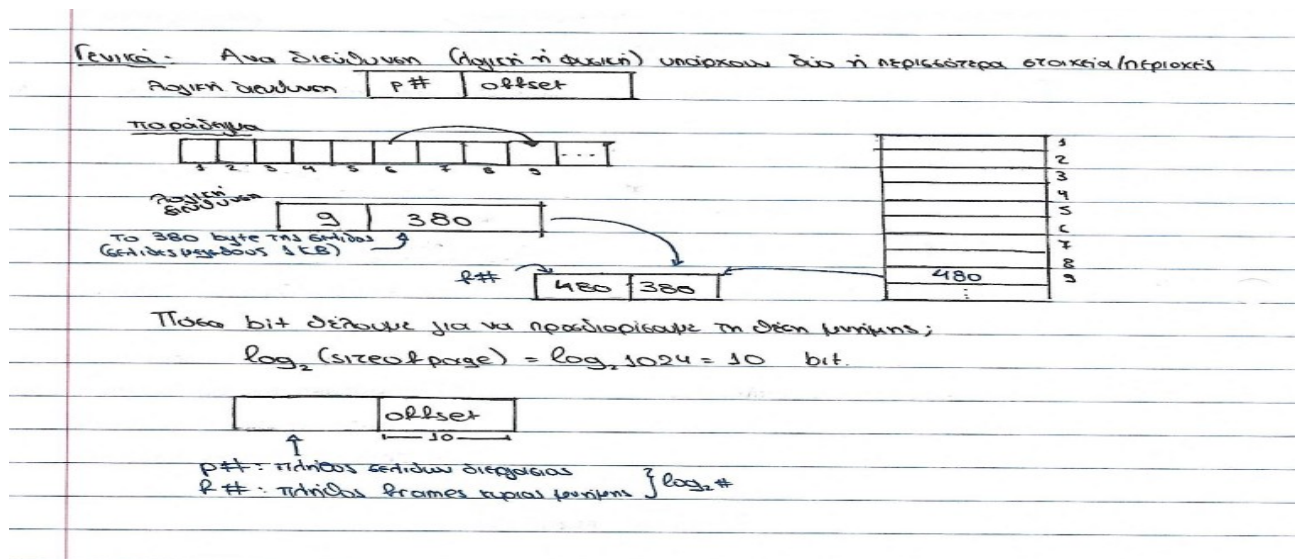 Γενικά: Ανα διεύθυνση (λογική ή φυσική) υπάρχουν δύο ή περισσότερα στοιχεία/περιοχές
λογική διεύθυνση p# offset
παράδειγμα
...
1 2 3 4 5 6 7 8 9
λογική διεύθυνση
9 380
το 380 byte της σελίδας
(σελίδες μεγέθους 1KB)
f# 480 380
1
2
3
4
5
6
7
8
480 9
⋮
Πόσα bit θέλουμε για να προσδιορίσουμε τη θέση μνήμης;
log₂ (sizeofpage) = log₂ 1024 = 10 bit.
offset
10
p# : πλήθος σελίδων διεργασίας
f# : πλήθος frames κυρίας μνήμης } log₂ #